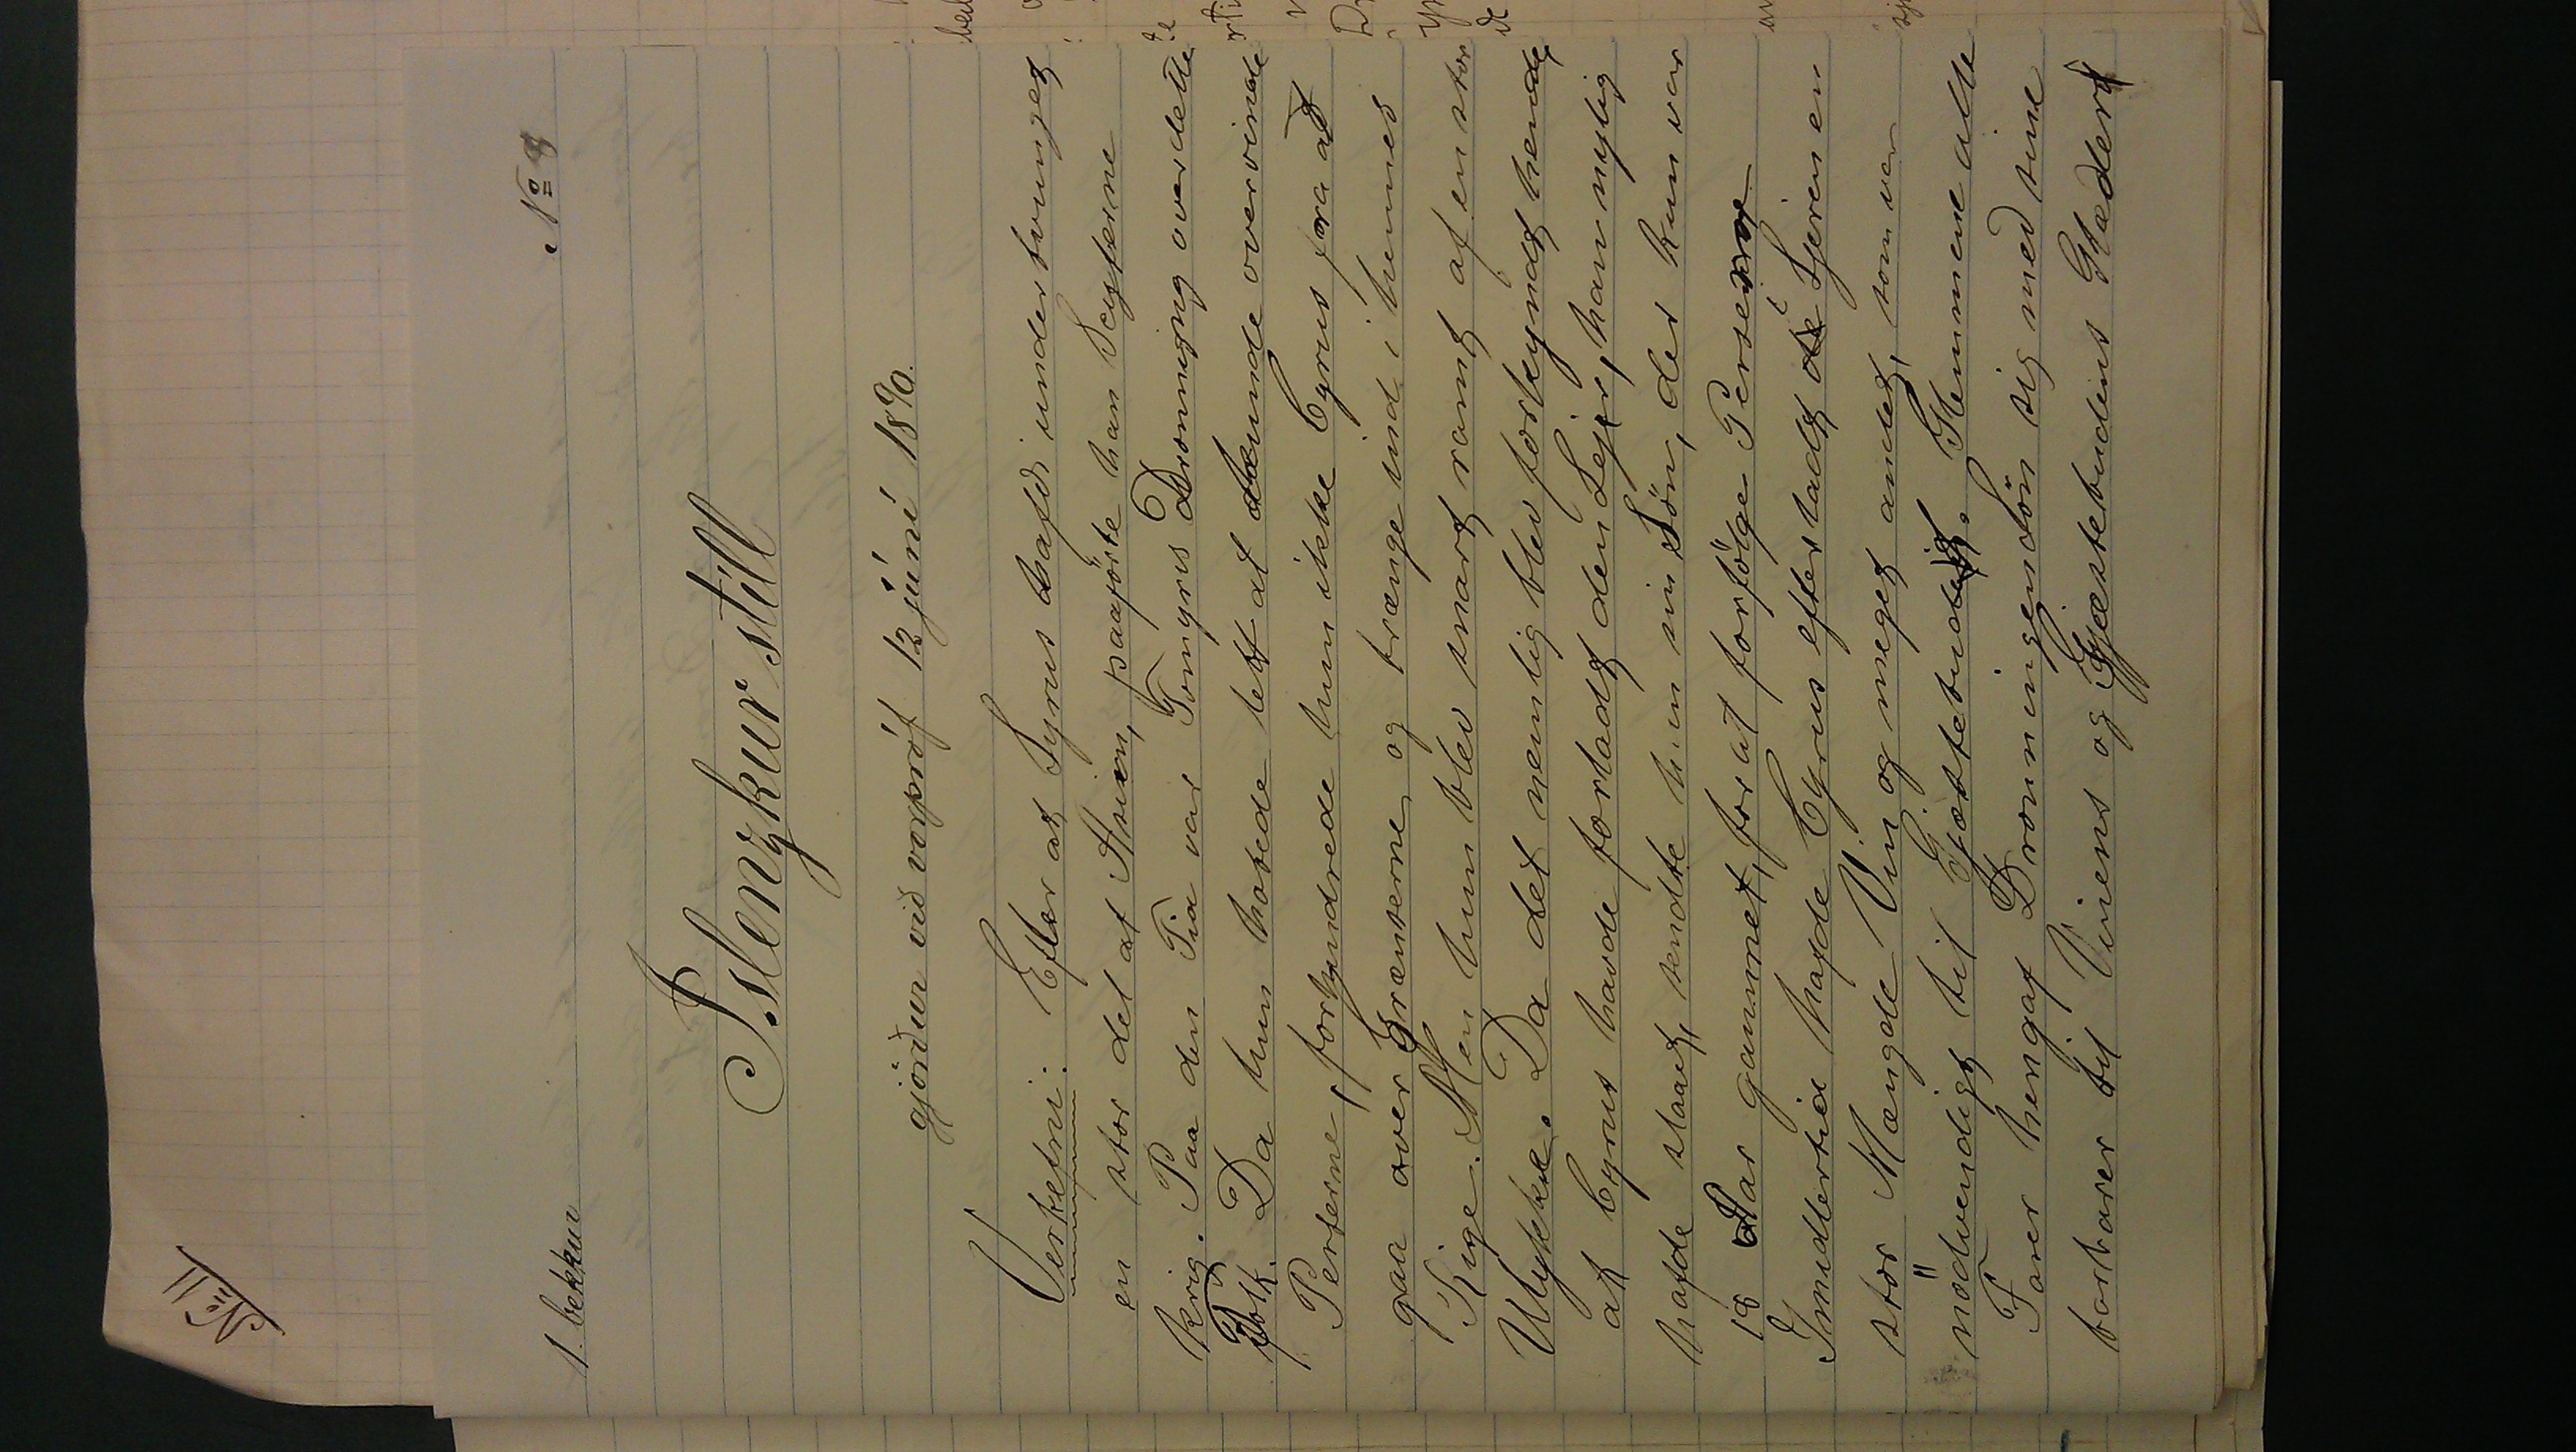 No 11
1. bekkur
No 8
Íslenzkur stíll
gjörður við vorpróf 12 júní 1890.
Verkefni: Efter at Syrus hafði undertvunget
en stor del af Asien, paaförte han Scyterne
krig. Paa den Tid var Tomyris Dronning over dette
Folk. Da hun havde let at kunde overvinde
Perserne, forhindrede hun ikke Cyrus fra at
gaa over Grænserne og trænge ind i hennes
Rige. Men hun blev snart ramt af en stor
Ulykke. Da det nemlig blev forkyndt hende
at Cyrus havde forladt den Lejr, han nylig
hafde slaaet, sendte hun sin Sön, der kun var
18 Aar gammel, for at forfölge Perserne
Imidlertid hafde Cyrus efterladt de Lejren en
stor Mængde Vin og meget andet, som var
nödvendigt til Gjæstebud. Glemmende alle
Farer hengaf Dronningens Sön sig med sine
barbarer til Vinens og Gjæstebudens Glæder